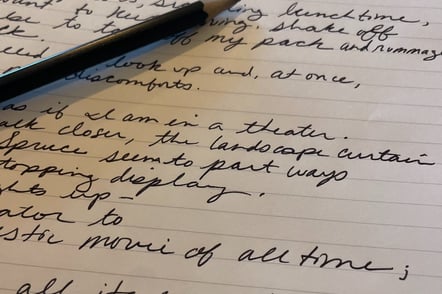 to lunchtime,
be to shake off
k. to off my pack and rummage
look up and, at once,
discomforts.
as if I am in a theater.
alk closer, the landscape curtain
spruce seem to part ways
topping display.
ghts up—
ator to
estic movie of all time;
all its